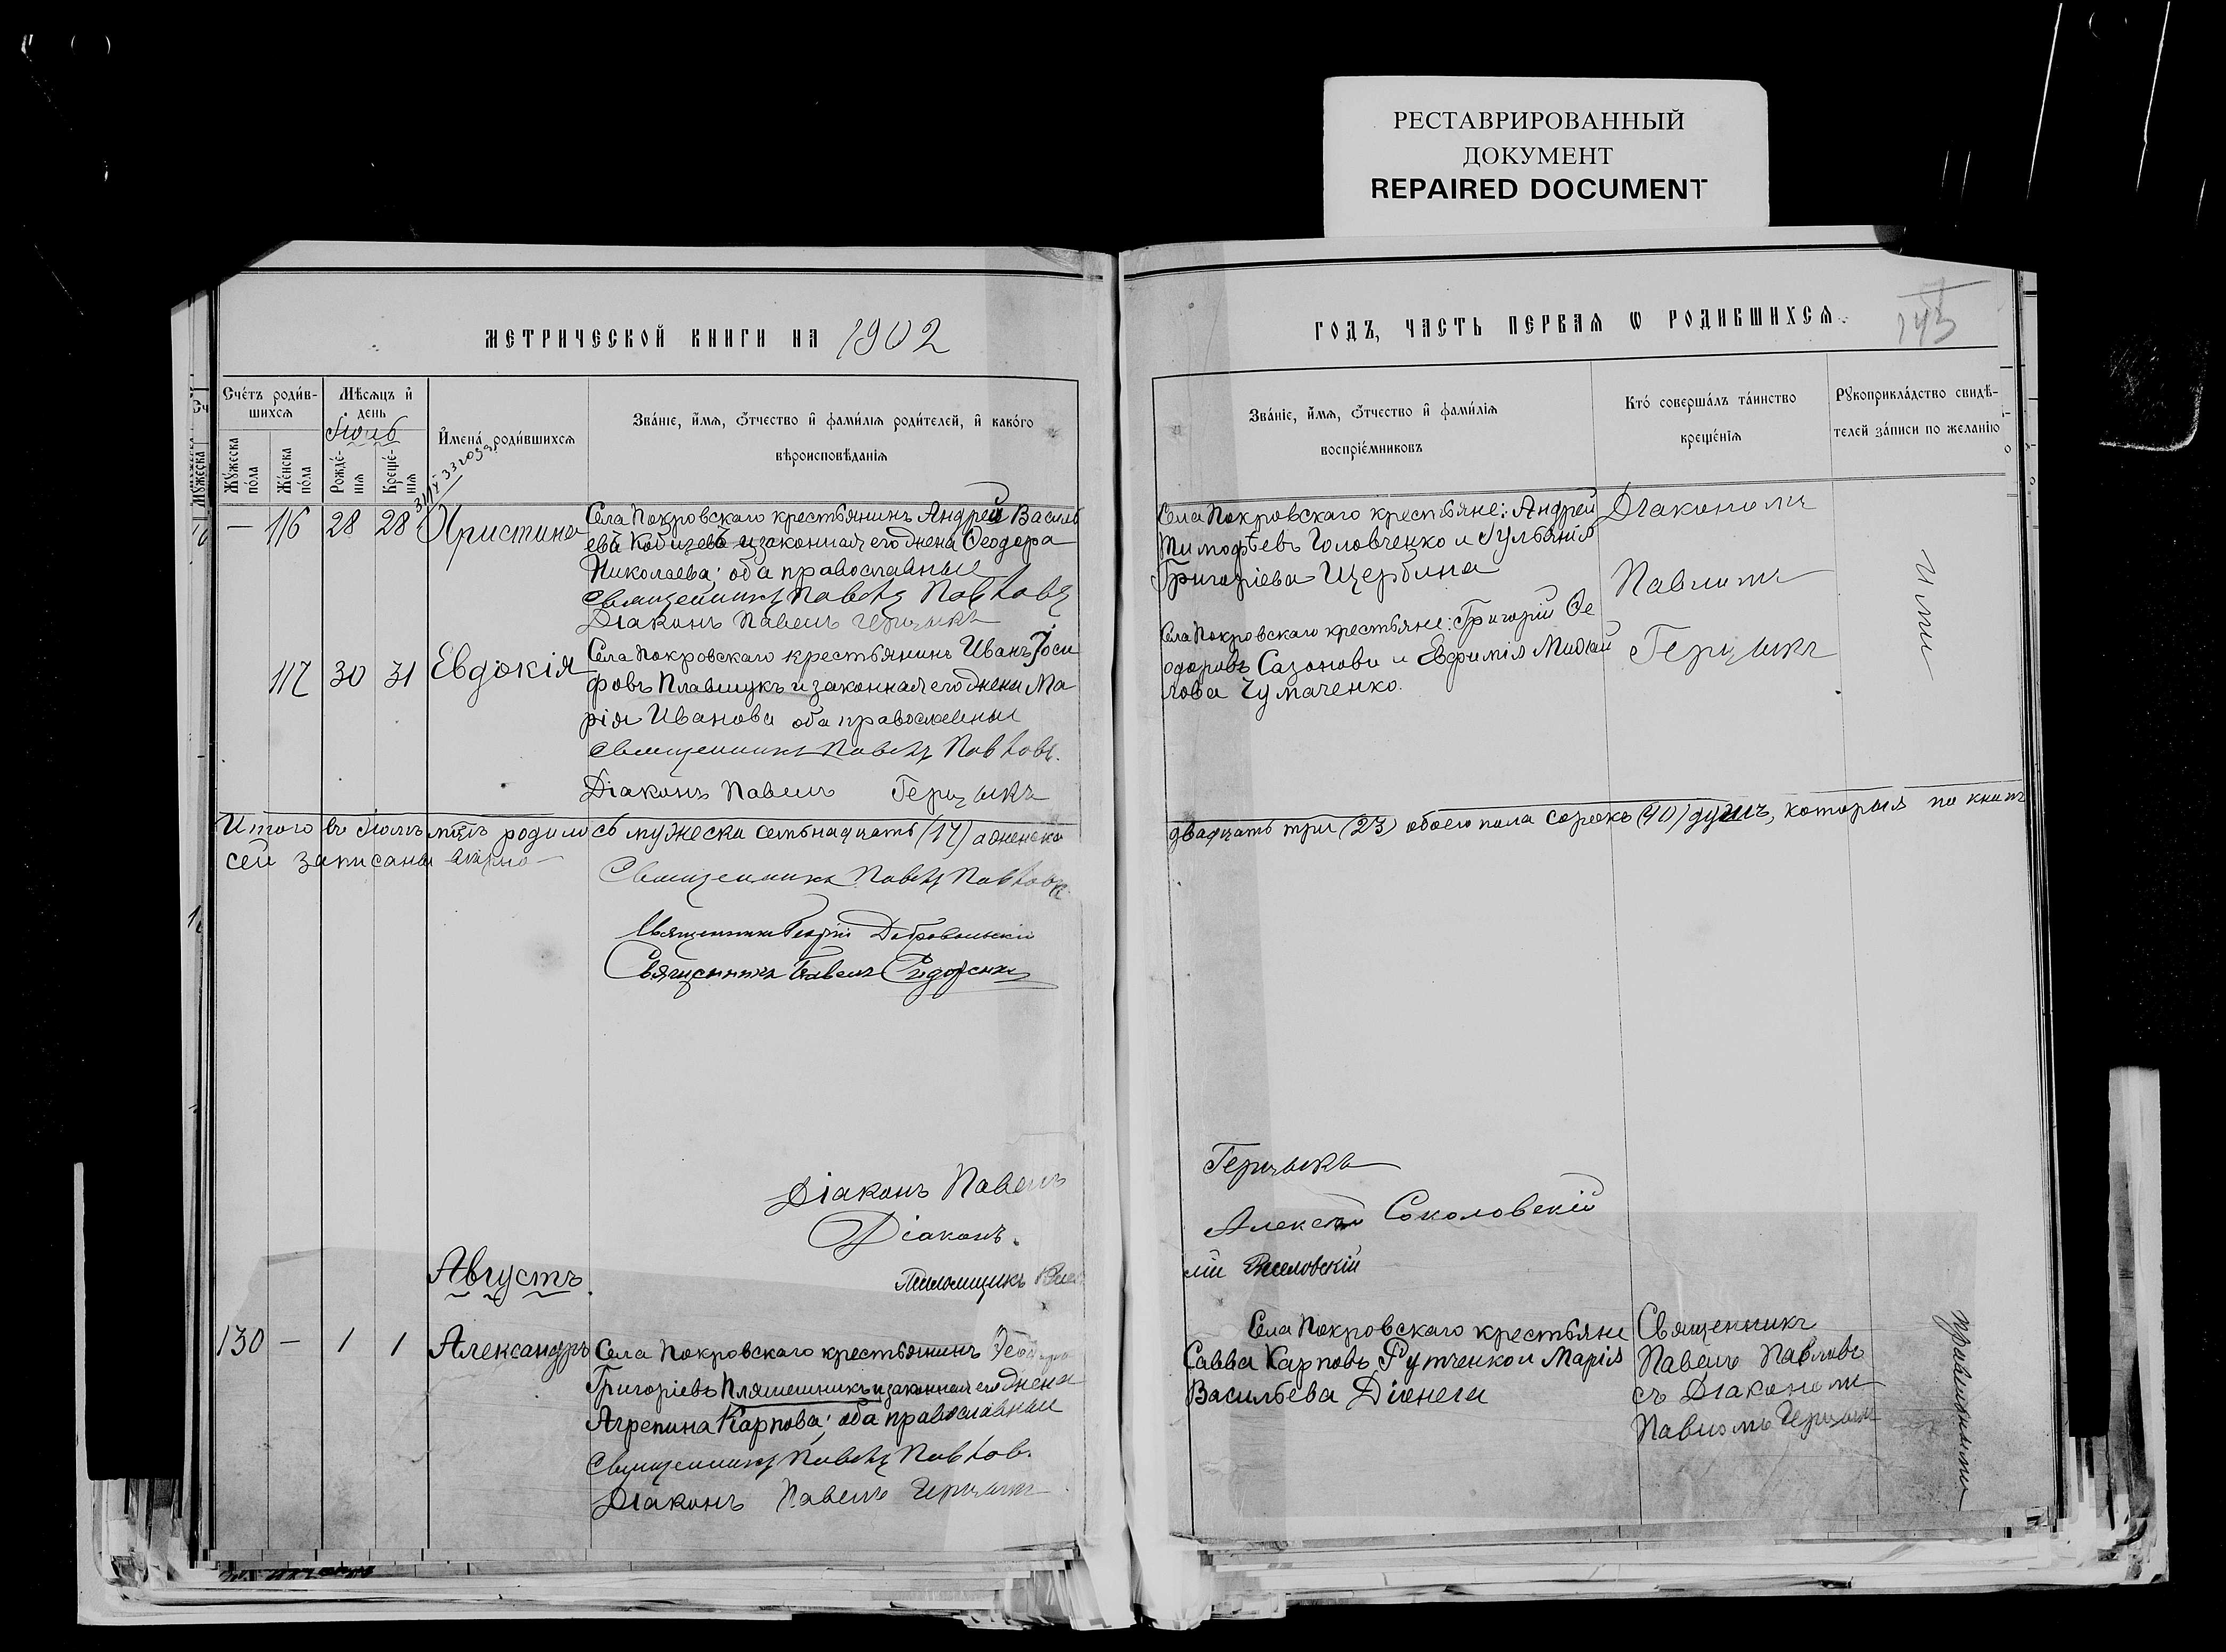 РЕСТАВРИРОВАННЫЙ
ДОКУМЕНТ
REPAIRED DOCUMENT
МЕТРИЧЕСКОЙ КНИГИ НА 1902
ГОДЪ, ЧАСТЬ ПЕРВАЯ Ѡ РОДИВШИХСЯ.
143
Счетъ родив-
шихся
Мужеска
пола
Женска
пола
Мѣсяцъ и
день
Іюль
Рожде-
нія
Креще-
нія
Имена родившихся
Званіе, имя, отчество и фамилія родителей, и какого
вѣроисповѣданія
Званіе, имя, отчество и фамилія
воспріемниковъ
Кто совершалъ таинство
крещенія
Рукоприкладство свидѣ-
телей записи по желанію
— 116 28 28 Христина
Села Покровскаго крестьянинъ Андрей Василь
евъ и законная его жена Ѳеодора
Николаева; оба православные
Священникъ Павелъ Павловъ
Діаконъ Павелъ Герцыкъ
Села Покровскаго крестьяне: Андрей
Тимофѣевъ Головченко и Іуліанія
Григоріева Щербина
Діакономъ
Павломъ
Герцыкъ
ними
117 30 31 Евдокія
Села Покровскаго крестьянинъ Иванъ Іоси
фовъ Плавшукъ и законная его жена Ма
рія Иванова оба православные
Священникъ Павелъ Павловъ.
Діаконъ Павелъ Герцыкъ
Села Покровскаго крестьяне: Григорій Ѳе
одоровъ Сазоновъ и Евфимія Михаи
лова Чумаченко.
Итого въ Іюлѣ мѣсяцѣ родилось мужеска семьнадцать (17) а женска
двадцать три (23) обоего пола сорокъ (40) душъ, которыя по книгѣ
сей записаны вѣрно —
Священникъ Павелъ Павловъ
Священникъ Георгій Добровольскій
Священникъ Павелъ Сидоренко
Діаконъ Павелъ
Герцыкъ
Діаконъ.
Алексѣй Соколовскій
Псаломщикъ
Августъ
130 — 1 1 Александръ
Села Покровскаго крестьянинъ
Григоріевъ Пляшешникъ и законная его жена
Агрепина Карпова; оба православные
Священникъ Павелъ Павлов.
Діаконъ Павелъ Герцыкъ
Села Покровскаго крестьяне
Савва Карповъ Рутченко и Марія
Васильева Діонега
Священникъ
Павелъ Павловъ
съ Діакономъ
Павломъ Герцыкъ